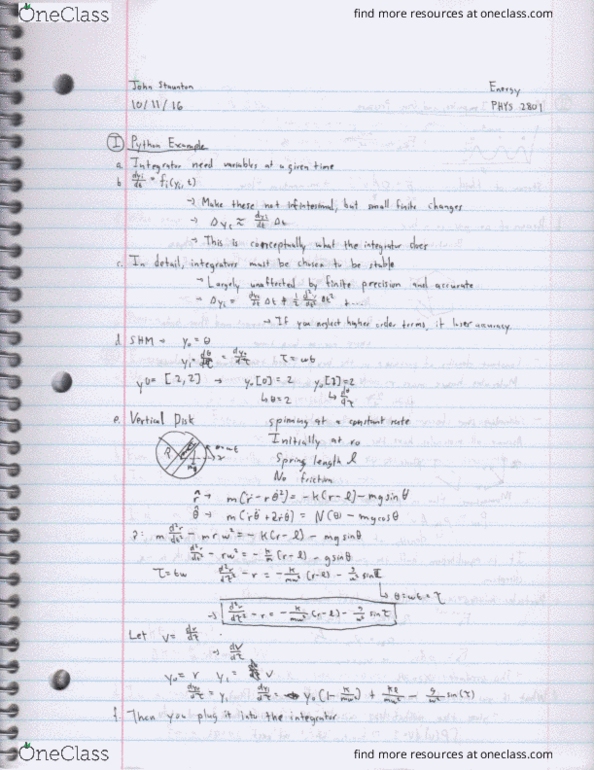 OneClass
find more resources at oneclass.com
John Staunton
Energy
10/11/16
PHYS 2801
I Python Example
a. Integrator need variables at a given time
b dyi/dt = fi(yi, t)
→ Make these not infintesimal, but small finite changes
→ Δyi ≈ dyi/dt Δt
→ This is conceptually what the integrator does
c. In detail, integrators must be chosen to be stable
→ Largely unaffected by finite precision and accurate
→ Δyi = dyi/dt Δt + 1/2 d²y/dt² Δt² +....
→ If you neglect higher order terms, it loses accuracy
d SHM → y₀ = θ
y₁ = dθ/dτ = dy₀/dτ τ = ωt
y0 = [2,2] → y₀[0] = 2 y₀[1] = 2
↳ θ = 2 ↳ dθ/dτ
e. Vertical Disk
spinning at a constant rate
Initially at r₀
Spring length l
No friction
r̂ → m(r̈ - rθ̇²) = -k(r-l) - mg sinθ
θ̂ → m(rθ̈ + 2ṙθ̇) = N(θ) - mg cosθ
m d²r/dt² - mrω² = -k(r-l) - mg sinθ
d²r/dt² - rω² = -k/m (r-l) - g sinθ
τ = tω d²r/dτ² - r = -k/mω² (r-l) - g/ω² sin τ
↳ θ = ωt = τ
→ d²r/dτ² - r = -k/mω² (r-l) - g/ω² sin τ
Let v = dr/dτ
→ dv/dτ
y₀ = r y₁ = v
dy₀/dτ = y₁ dy₁/dτ = y₀(1 - k/mω²) + kl/mω² - g/ω² sin(τ)
f. Then you plug it into the integrator
OneClass
find more resources at oneclass.com